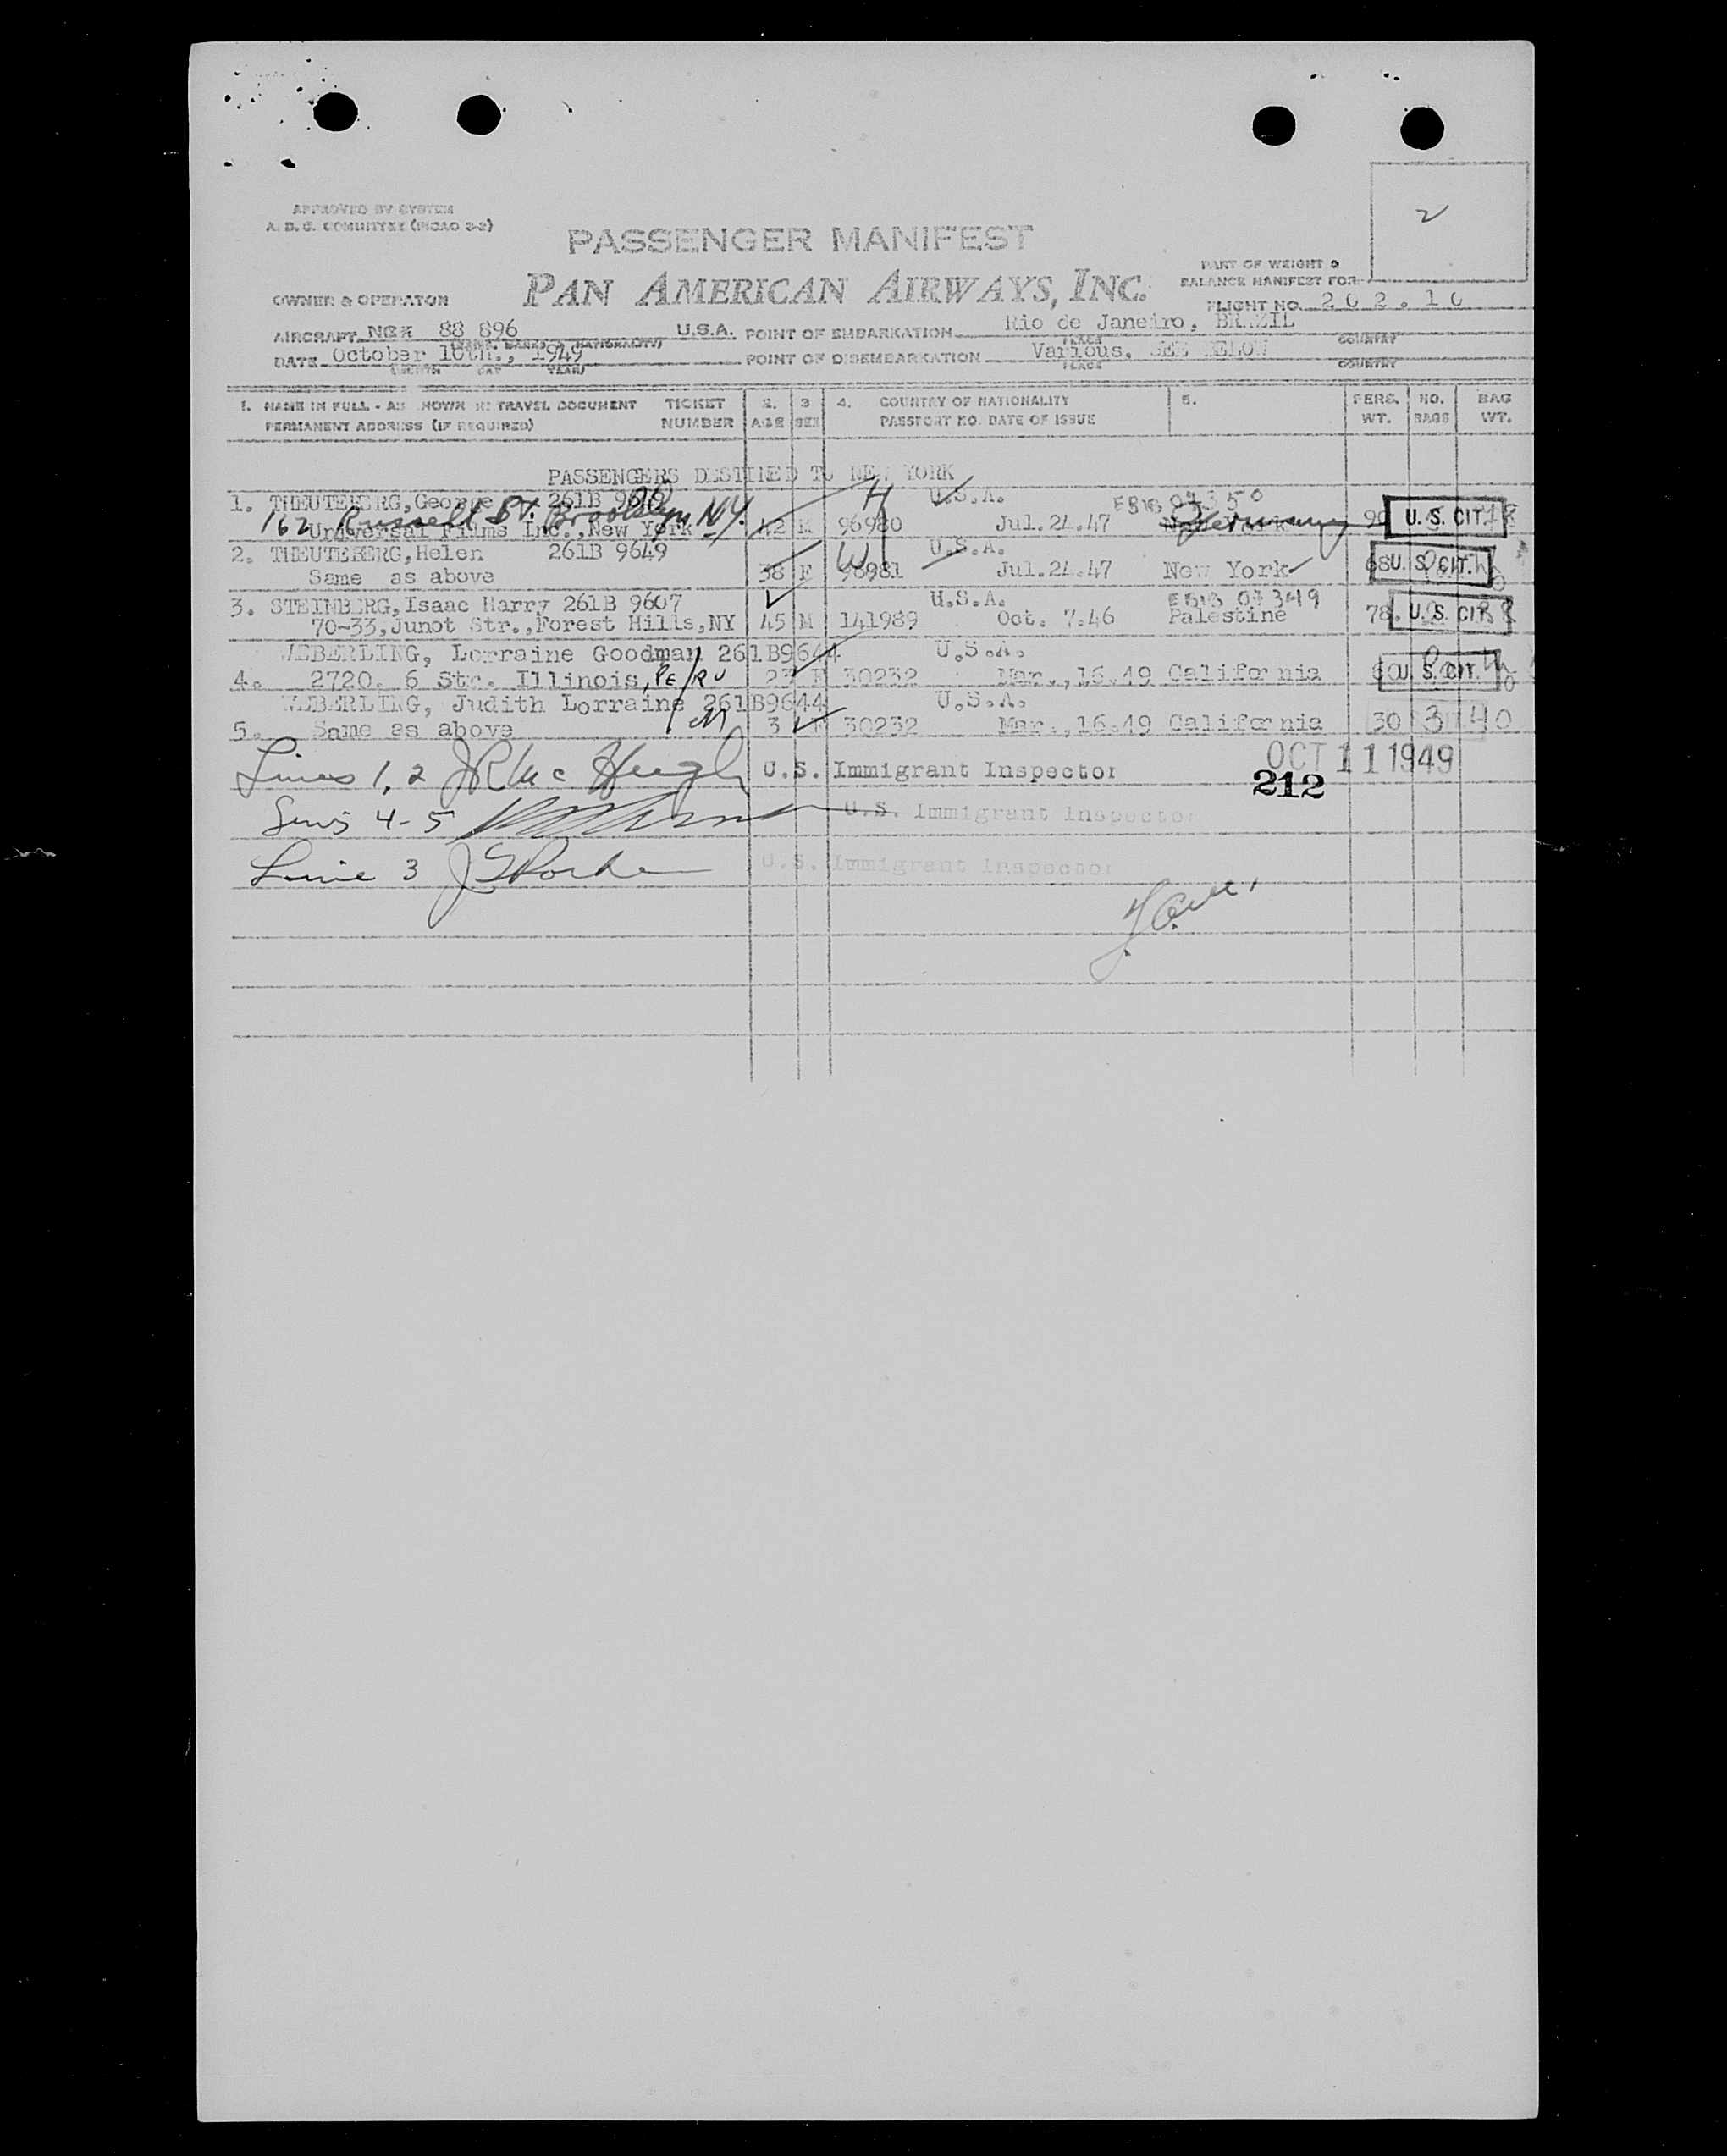 2
APPROVED BY SYSTEM
A. D. C. COMMITTEE (PICAO 2-2)
PASSENGER MANIFEST
PAN AMERICAN AIRWAYS, INC.
PART OF WEIGHT &
BALANCE MANIFEST FOR
OWNER & OPERATOR
FLIGHT NO. 202.10
AIRCRAFT NC 88 896 U.S.A. POINT OF EMBARKATION Rio de Janeiro, BRAZIL
PLACE COUNTRY
DATE October 10th., 1949 POINT OF DISEMBARKATION Various. SEE BELOW
MONTH DAY YEAR PLACE COUNTRY
1. NAME IN FULL - AS SHOWN IN TRAVEL DOCUMENT TICKET 2. 3 4. COUNTRY OF NATIONALITY 5. PERS. NO. BAG
PERMANENT ADDRESS (IF REQUIRED) NUMBER AGE SEX PASSPORT NO. DATE OF ISSUE WT. BAGS WT.
PASSENGERS DESTINED TO NEW YORK
1. THEUTEBERG, George 261B U.S.A.
162 Russell St. Brooklyn NY. H
Universal Films Inc., New York 42 M 96980 Jul.24.47 Germany 90 U. S. CIT.
2. THEUTEBERG, Helen 261B 9649 W U.S.A.
Same as above 38 F 96981 Jul.24.47 New York 68 U. S. CIT.
3. STEINBERG, Isaac Harry 261B 9607 U.S.A.
70-33, Junot Str., Forest Hills, NY 45 M 141989 Oct. 7.46 Palestine 78. U. S. CIT.
WEBERLING, Lorraine Goodman 261B9644 U.S.A.
4. 2720. 6 Str. Illinois, PERU 27 F 30232 Mar.,16.49 California 60 U. S. CIT.
WEBERLING, Judith Lorraine 261B9644 U.S.A.
5. Same as above 3 F 30232 Mar.,16.49 California 30 3 40
Lines 1, 2 J R Mc Hugh U.S. Immigrant Inspector OCT 11 1949
212
Lines 4-5 U.S. Immigrant Inspector
Line 3 U.S. Immigrant Inspector